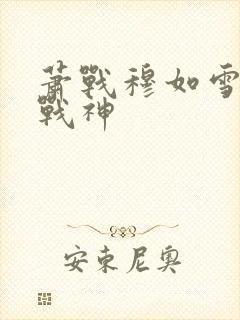 萧戰穆如雪
戰神
安東尼奧